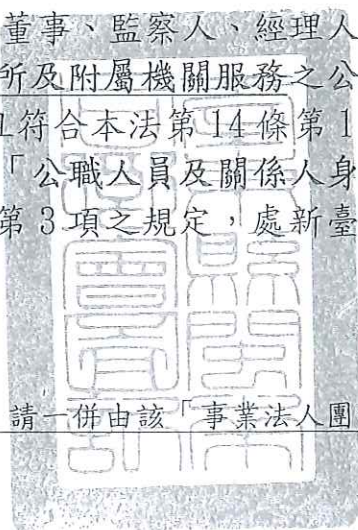 董事、監察人、經理人
所及附屬機關服務之公
符合本法第14條第1
「公職人員及關係人身
第3項之規定，處新臺
請一併由該「事業法人團